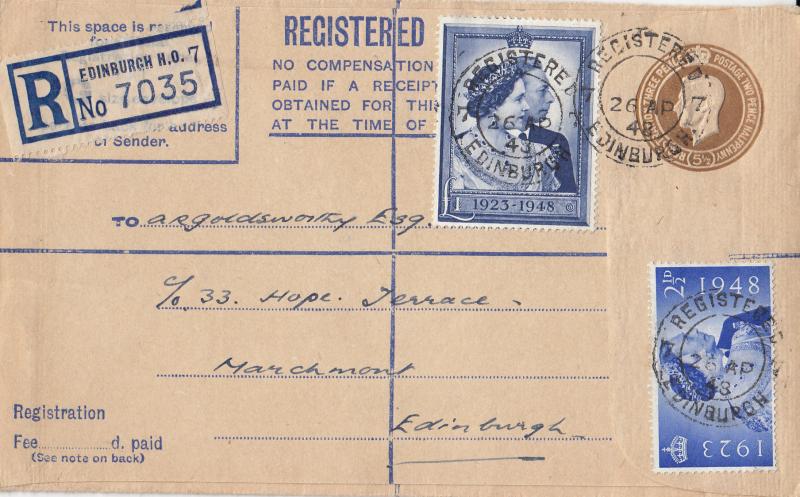 This space is
address
of Sender.
R
EDINBURGH H.O. 7
No 7035
REGISTERED
NO COMPENSATION
PAID IF A RECEIPT
OBTAINED FOR THIS
AT THE TIME OF
REGISTERED
26 AP
48
EDINBURGH
£1
1923-1948
REGISTERED
26 AP 7
48
EDINBURGH
POSTAGE TWO PENCE HALFPENNY
THREE PENCE
(5½)
TO argoldsworthy Esq.
c/o 33. Hope. Terrace -
Marchmont
Edinburgh
2½D 1948
REGISTERED
26 AP
48
EDINBURGH
1923
Registration
Fee d. paid
(See note on back)